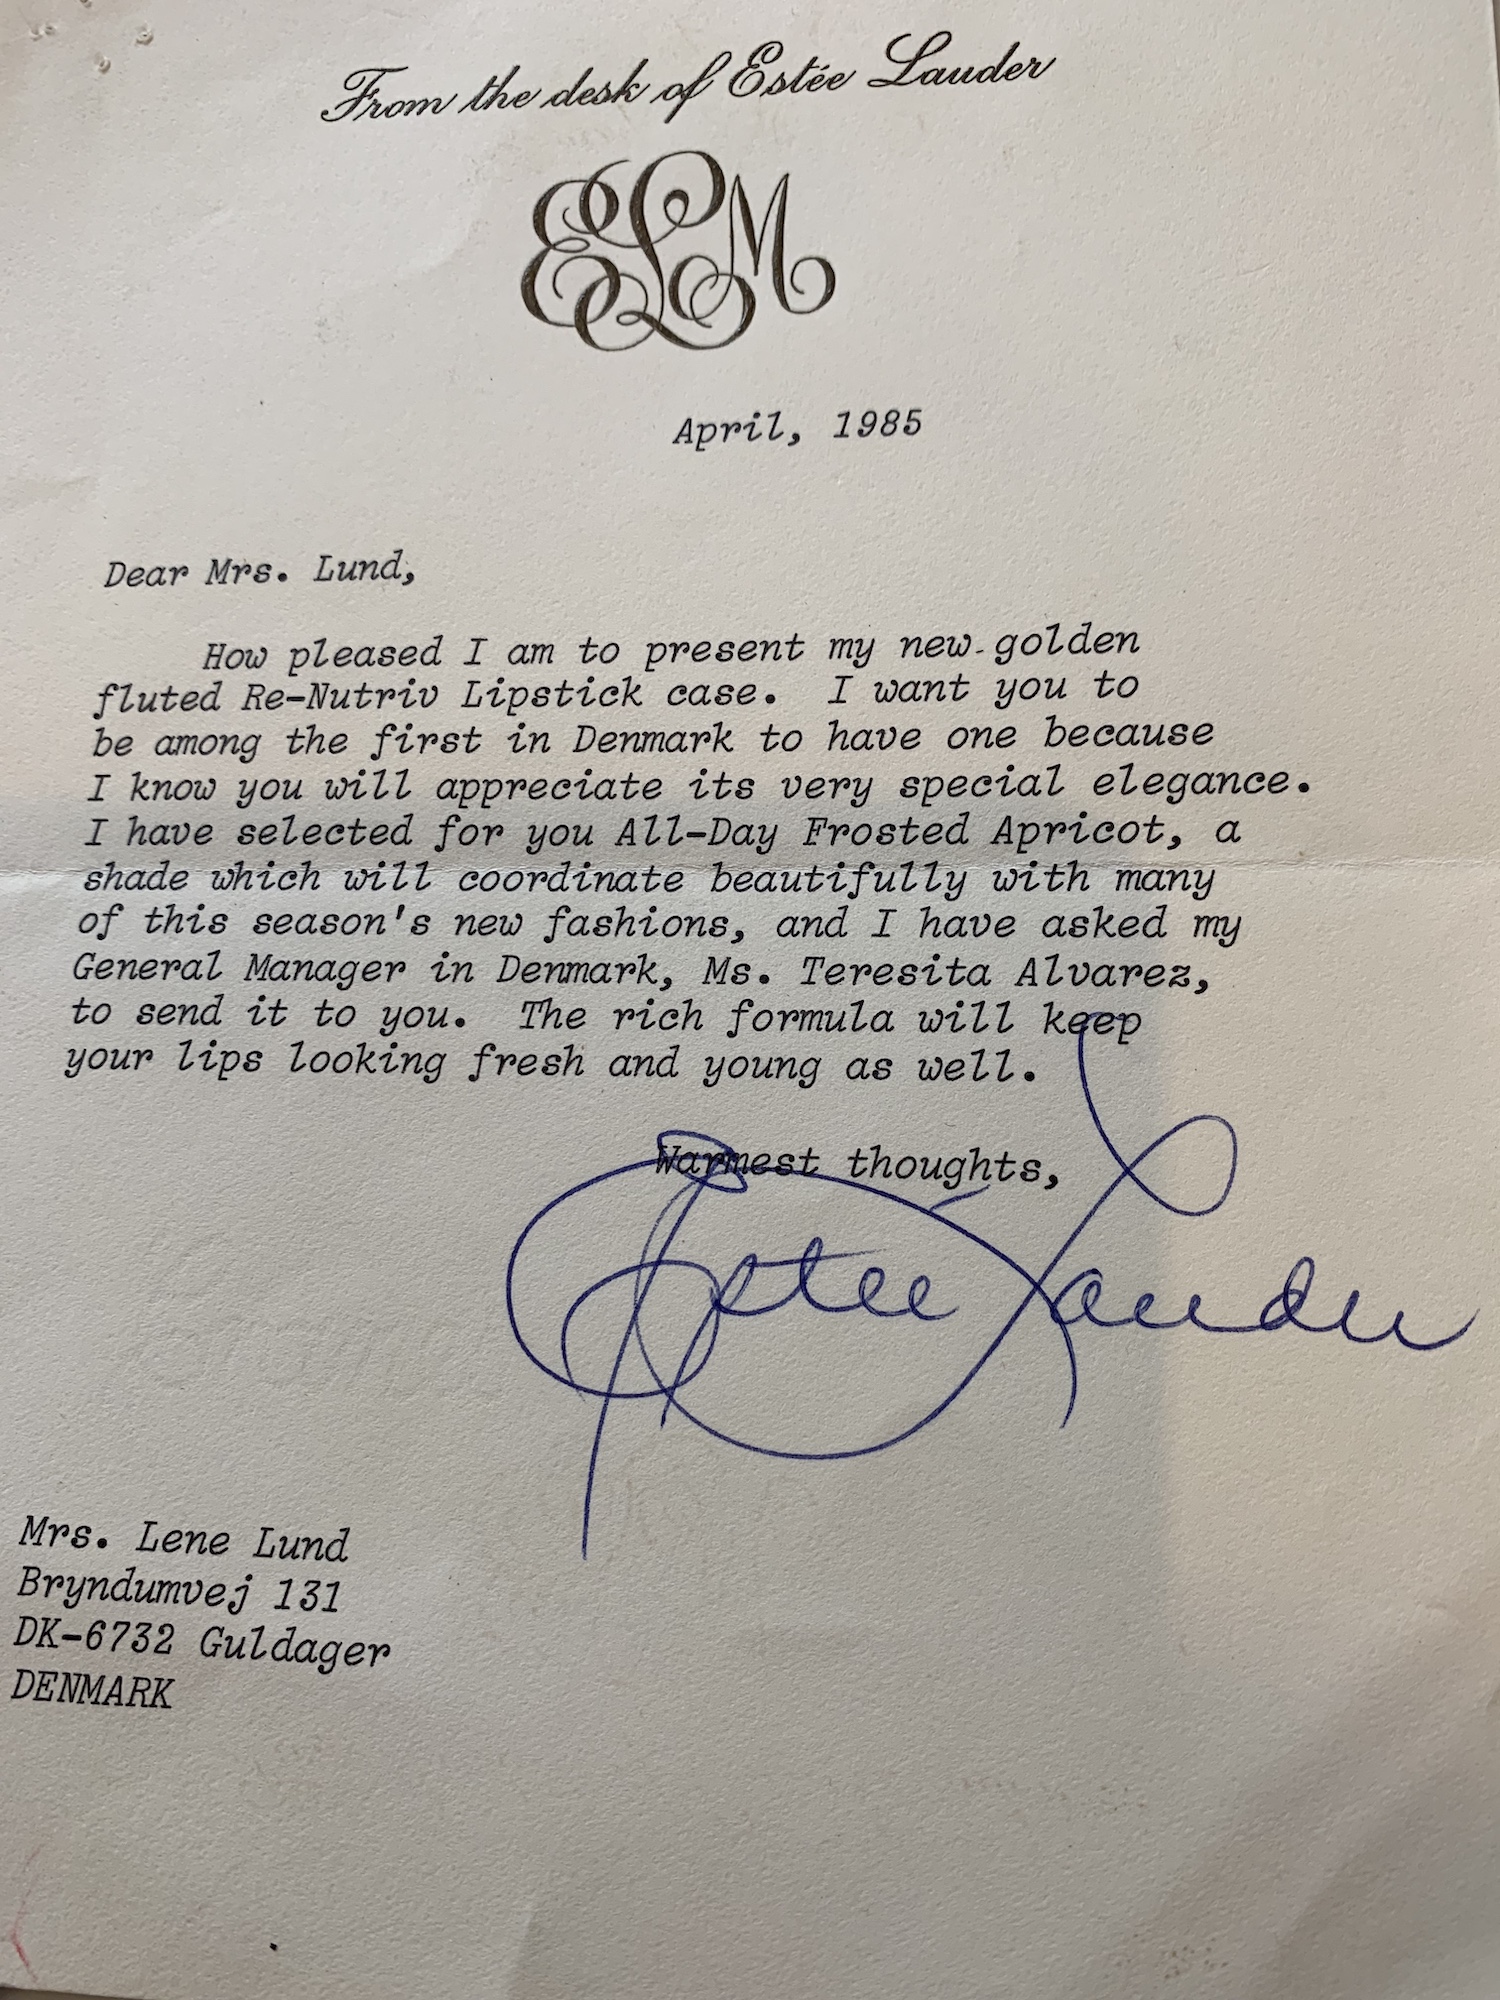 From the desk of Estée Lauder
ELM
April, 1985
Dear Mrs. Lund,
How pleased I am to present my new golden
fluted Re-Nutriv Lipstick case. I want you to
be among the first in Denmark to have one because
I know you will appreciate its very special elegance.
I have selected for you All-Day Frosted Apricot, a
shade which will coordinate beautifully with many
of this season's new fashions, and I have asked my
General Manager in Denmark, Ms. Teresita Alvarez,
to send it to you. The rich formula will keep
your lips looking fresh and young as well.
Warmest thoughts,
Estée Lauder
Mrs. Lene Lund
Bryndumvej 131
DK-6732 Guldager
DENMARK